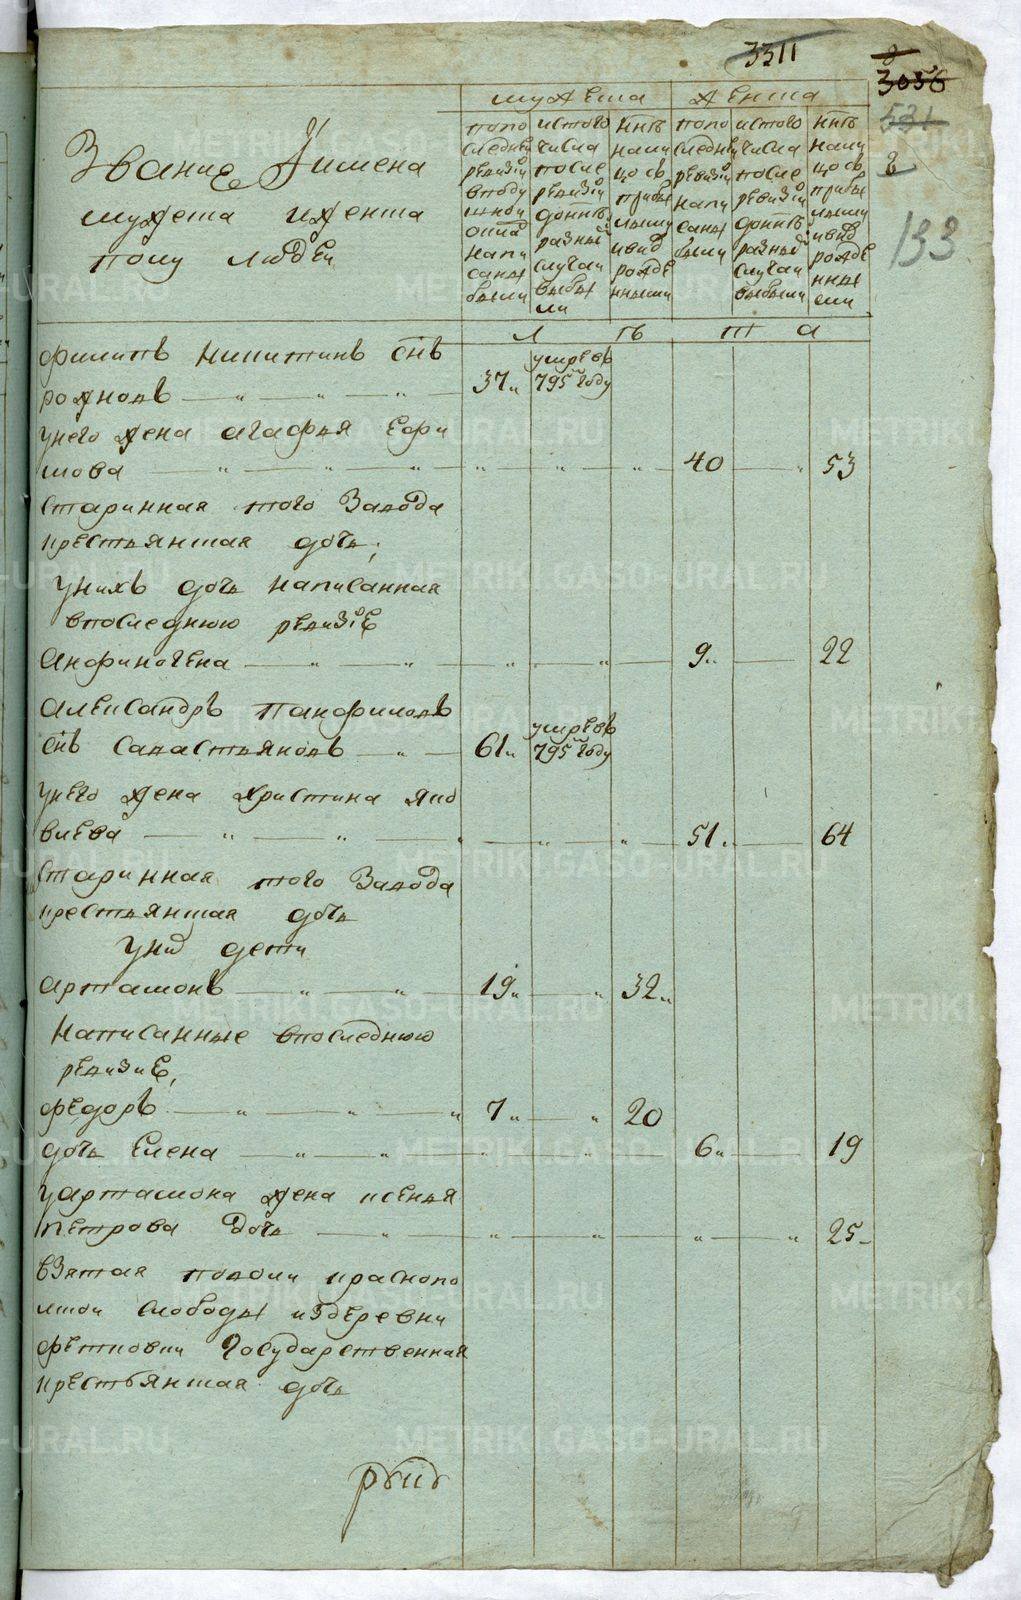 3311
3056
531
8
133
мужеска
женска
Звание Уимена
мужеска иженска
полу людей
попо следней ревизии вподушной описе написаны были
истого числа после ревизии доныне разными случаи выбыли
ныне налицо съ прибылыми ивнов рожденными
попо следней ревизии написаны были
истого числа после ревизии доныне разными случаи выбыли
ныне налицо съ прибылыми ивнов рожденными
Л ѣ т а
филипъ никитинъ снъ
умре въ
рожновъ 37 795 году
унего жена агафья ефи
мова 40 53
старинная того завода
крестьянская дочь
унихъ дочь написанная
впоследнюю ревизїе
анфиногена 9 22
александръ панфиловъ
умре въ
снъ савастьяновъ 61 795 году
унего жена христина яко
влева 51 64
старинная того завода
крестьянская дочь
уних дети
артамонъ 19 32
написанные впоследнюю
ревизие
федоръ 7 20
дочь елена 6 19
уартамона жена ксенья
петрова дочь 25
взятая
слободы издеревни
государственная
крестьянская дочь